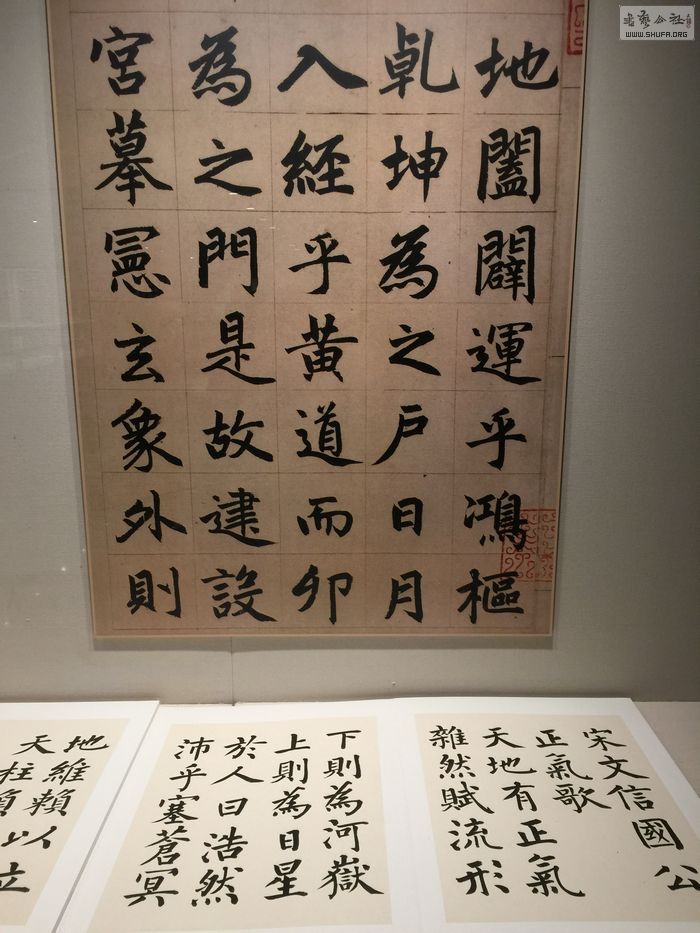 書藝公社
WWW.SHUFA.ORG
地闔闢運乎鴻樞
乹坤為之戶日月
入經乎黃道而卯
為之門是故建設
宮摹憲玄象外則
宋文信國公
正氣歌
天地有正氣
雜然賦流形
下則為河嶽
上則為日星
於人曰浩然
沛乎塞蒼冥
地維賴以立
天柱賴